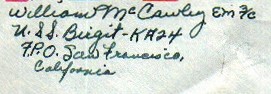 William P McCawley Em 3/c
U.S.S. Birgit - KA24
F.P.O. San Francisco,
California